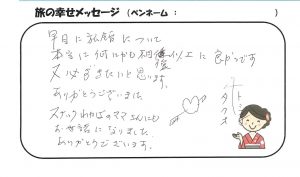 旅の幸せメッセージ （ペンネーム： ）
早目に旅館について
本当に何にかも 以上に良かったです
又必ずきたいと思います。
ありがとうございました。
スナックわかばのママさんにも
お世話になりました
ありがとうございます。